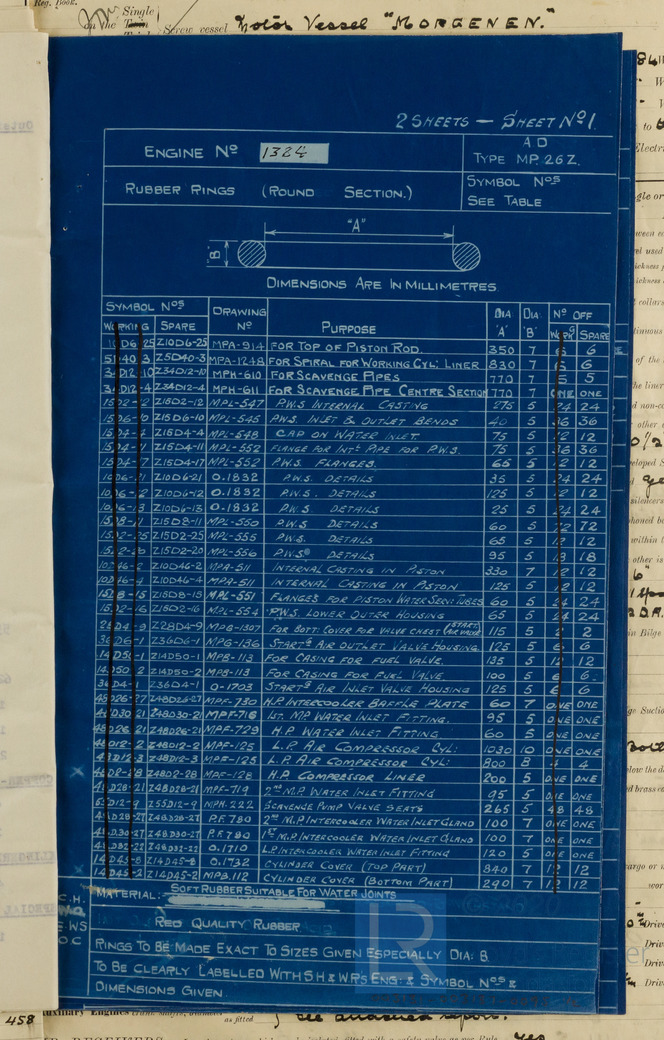 Single
Screw vessel Motor Vessel "MORGENEN."
2 SHEETS — SHEET Nº 1.
ENGINE Nº 1324
A D
TYPE MP. 26Z.
RUBBER RINGS (ROUND SECTION.)
SYMBOL Nºs
SEE TABLE
"A"
"B"
DIMENSIONS ARE IN MILLIMETRES
SYMBOL Nºs DRAWING Nº PURPOSE DIA 'A' DIA. 'B' Nº OFF
WORKING SPARE WORKG SPARE
Z10D6-25 MPA-914 FOR TOP OF PISTON ROD. 350 7 6 6
Z5D40-3 MPA-1248 FOR SPIRAL FOR WORKING CYL: LINER 830 7 6 6
Z34D12-10 MPH-610 FOR SCAVENGE PIPES 770 7 5 5
Z34D12-4 MPH-611 FOR SCAVENGE PIPE CENTRE SECTION 770 7 ONE ONE
Z15D2-12 MPL-547 P.W.S INTERNAL CASTING 275 5 24 24
Z15D6-10 MPL-545 P.W.S. INLET & OUTLET BENDS 40 5 36 36
Z15D4-4 MPL-548 CAP ON WATER INLET. 75 5 12 12
Z15D4-11 MPL-552 FLANGE FOR INTL PIPE FOR P.W.S. 75 5 36 36
Z15D4-17 MPL-552 P.W.S. FLANGES. 65 5 12 12
Z10D6-21 O.1832 P.W.S. DETAILS 35 5 24 24
Z10D6-12 O.1832 P.W.S. DETAILS 125 5 12 12
Z10D6-13 O.1832 P.W.S. DETAILS 25 5 24 24
Z15D8-11 MPL-550 P.W.S DETAILS 60 5 72 72
Z15D2-25 MPL-555 P.W.S DETAILS 65 5 12 12
Z15D2-20 MPL-556 P.W.S DETAILS 95 5 18 18
Z10D46-2 MPA-511 INTERNAL CASTING IN PISTON 330 7 12 12
Z10D46-4 MPA-511 INTERNAL CASTING IN PISTON 125 5 12 12
Z15D8-15 MPL-551 FLANGES FOR PISTON WATER SERV: TUBES 60 5 24 24
Z15D2-16 MPL-554 P.W.S. LOWER OUTER HOUSING 65 5 24 24
Z28D4-9 MPG-1307 FOR BOTT: COVER FOR VALVE CHEST (START: AIR VALVE) 115 5 2 2
Z36D6-1 MPG-136 STARTG AIR OUTLET VALVE HOUSING 125 5 6 6
Z14D50-1 MPB-113 FOR CASING FOR FUEL VALVE. 135 5 12 12
Z14D50-2 MPB-113 FOR CASING FOR FUEL VALVE. 100 5 6 6
Z36D4-1 O-1703 STARTG AIR INLET VALVE HOUSING 125 5 6 6
Z48D26-27 MPF-730 H.P INTERCOOLER BAFFLE PLATE 60 7 ONE ONE
Z48D30-21 MPF-716 1ST. M.P WATER INLET FITTING. 95 5 ONE ONE
Z48D26-21 MPF-729 H.P. WATER INLET FITTING. 60 5 ONE ONE
Z48D12-2 MPF-125 L.P. AIR COMPRESSOR CYL: 1030 10 ONE ONE
Z48D12-3 MPF-125 L.P. AIR COMPRESSOR CYL: 800 8 4 4
Z48D2-28 MPF-128 H.P. COMPRESSOR LINER 200 5 ONE ONE
Z48D28-21 MPF-719 2ND M.P. WATER INLET FITTING 95 5 ONE ONE
Z55D12-9 MPH-222 SCAVENGE PUMP VALVE SEATS 265 5 48 48
Z48D28-27 P.F.780 2ND M.P INTERCOOLER WATER INLET GLAND 100 7 ONE ONE
Z48D30-27 P.F.780 1ST M.P INTERCOOLER WATER INLET GLAND 100 7 ONE ONE
Z48D32-22 O.1710 L.P. INTERCOOLER WATER INLET FITTING 120 5 ONE ONE
Z14D45-8 O.1732 CYLINDER COVER (TOP PART) 340 7 12 12
Z14D45-2 MPB.112 CYLINDER COVER (BOTTOM PART) 290 7 12 12
MATERIAL:- SOFT RUBBER SUITABLE FOR WATER JOINTS
RED QUALITY RUBBER
RINGS TO BE MADE EXACT TO SIZES GIVEN ESPECIALLY DIA: B
TO BE CLEARLY LABELLED WITH S H & W RS ENG: & SYMBOL Nºs &
DIMENSIONS GIVEN
458
as fitted
see attached report.